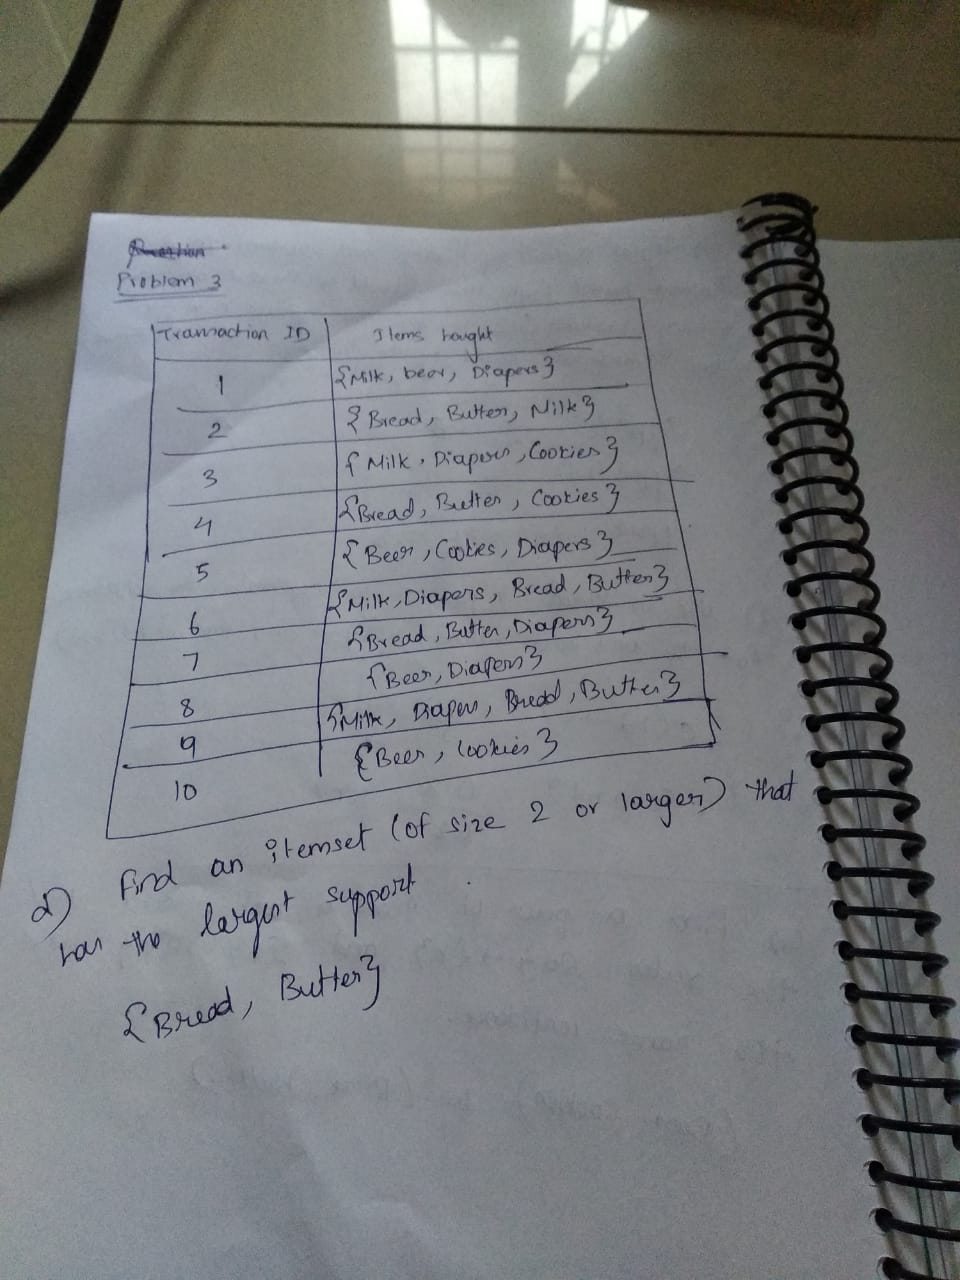 Question
Problem 3
Transaction ID Items bought
1 {Milk, beer, Diapers}
2 {Bread, Butter, Milk}
3 {Milk, Diapers, Cookies}
4 {Bread, Butter, Cookies}
5 {Beer, Cookies, Diapers}
6 {Milk, Diapers, Bread, Butter}
7 {Bread, Butter, Diapers}
8 {Beer, Diapers}
9 {Milk, Diapers, Bread, Butter}
10 {Beer, Cookies}
d) Find an itemset (of size 2 or larger) that
has the largest support.
{Bread, Butter}